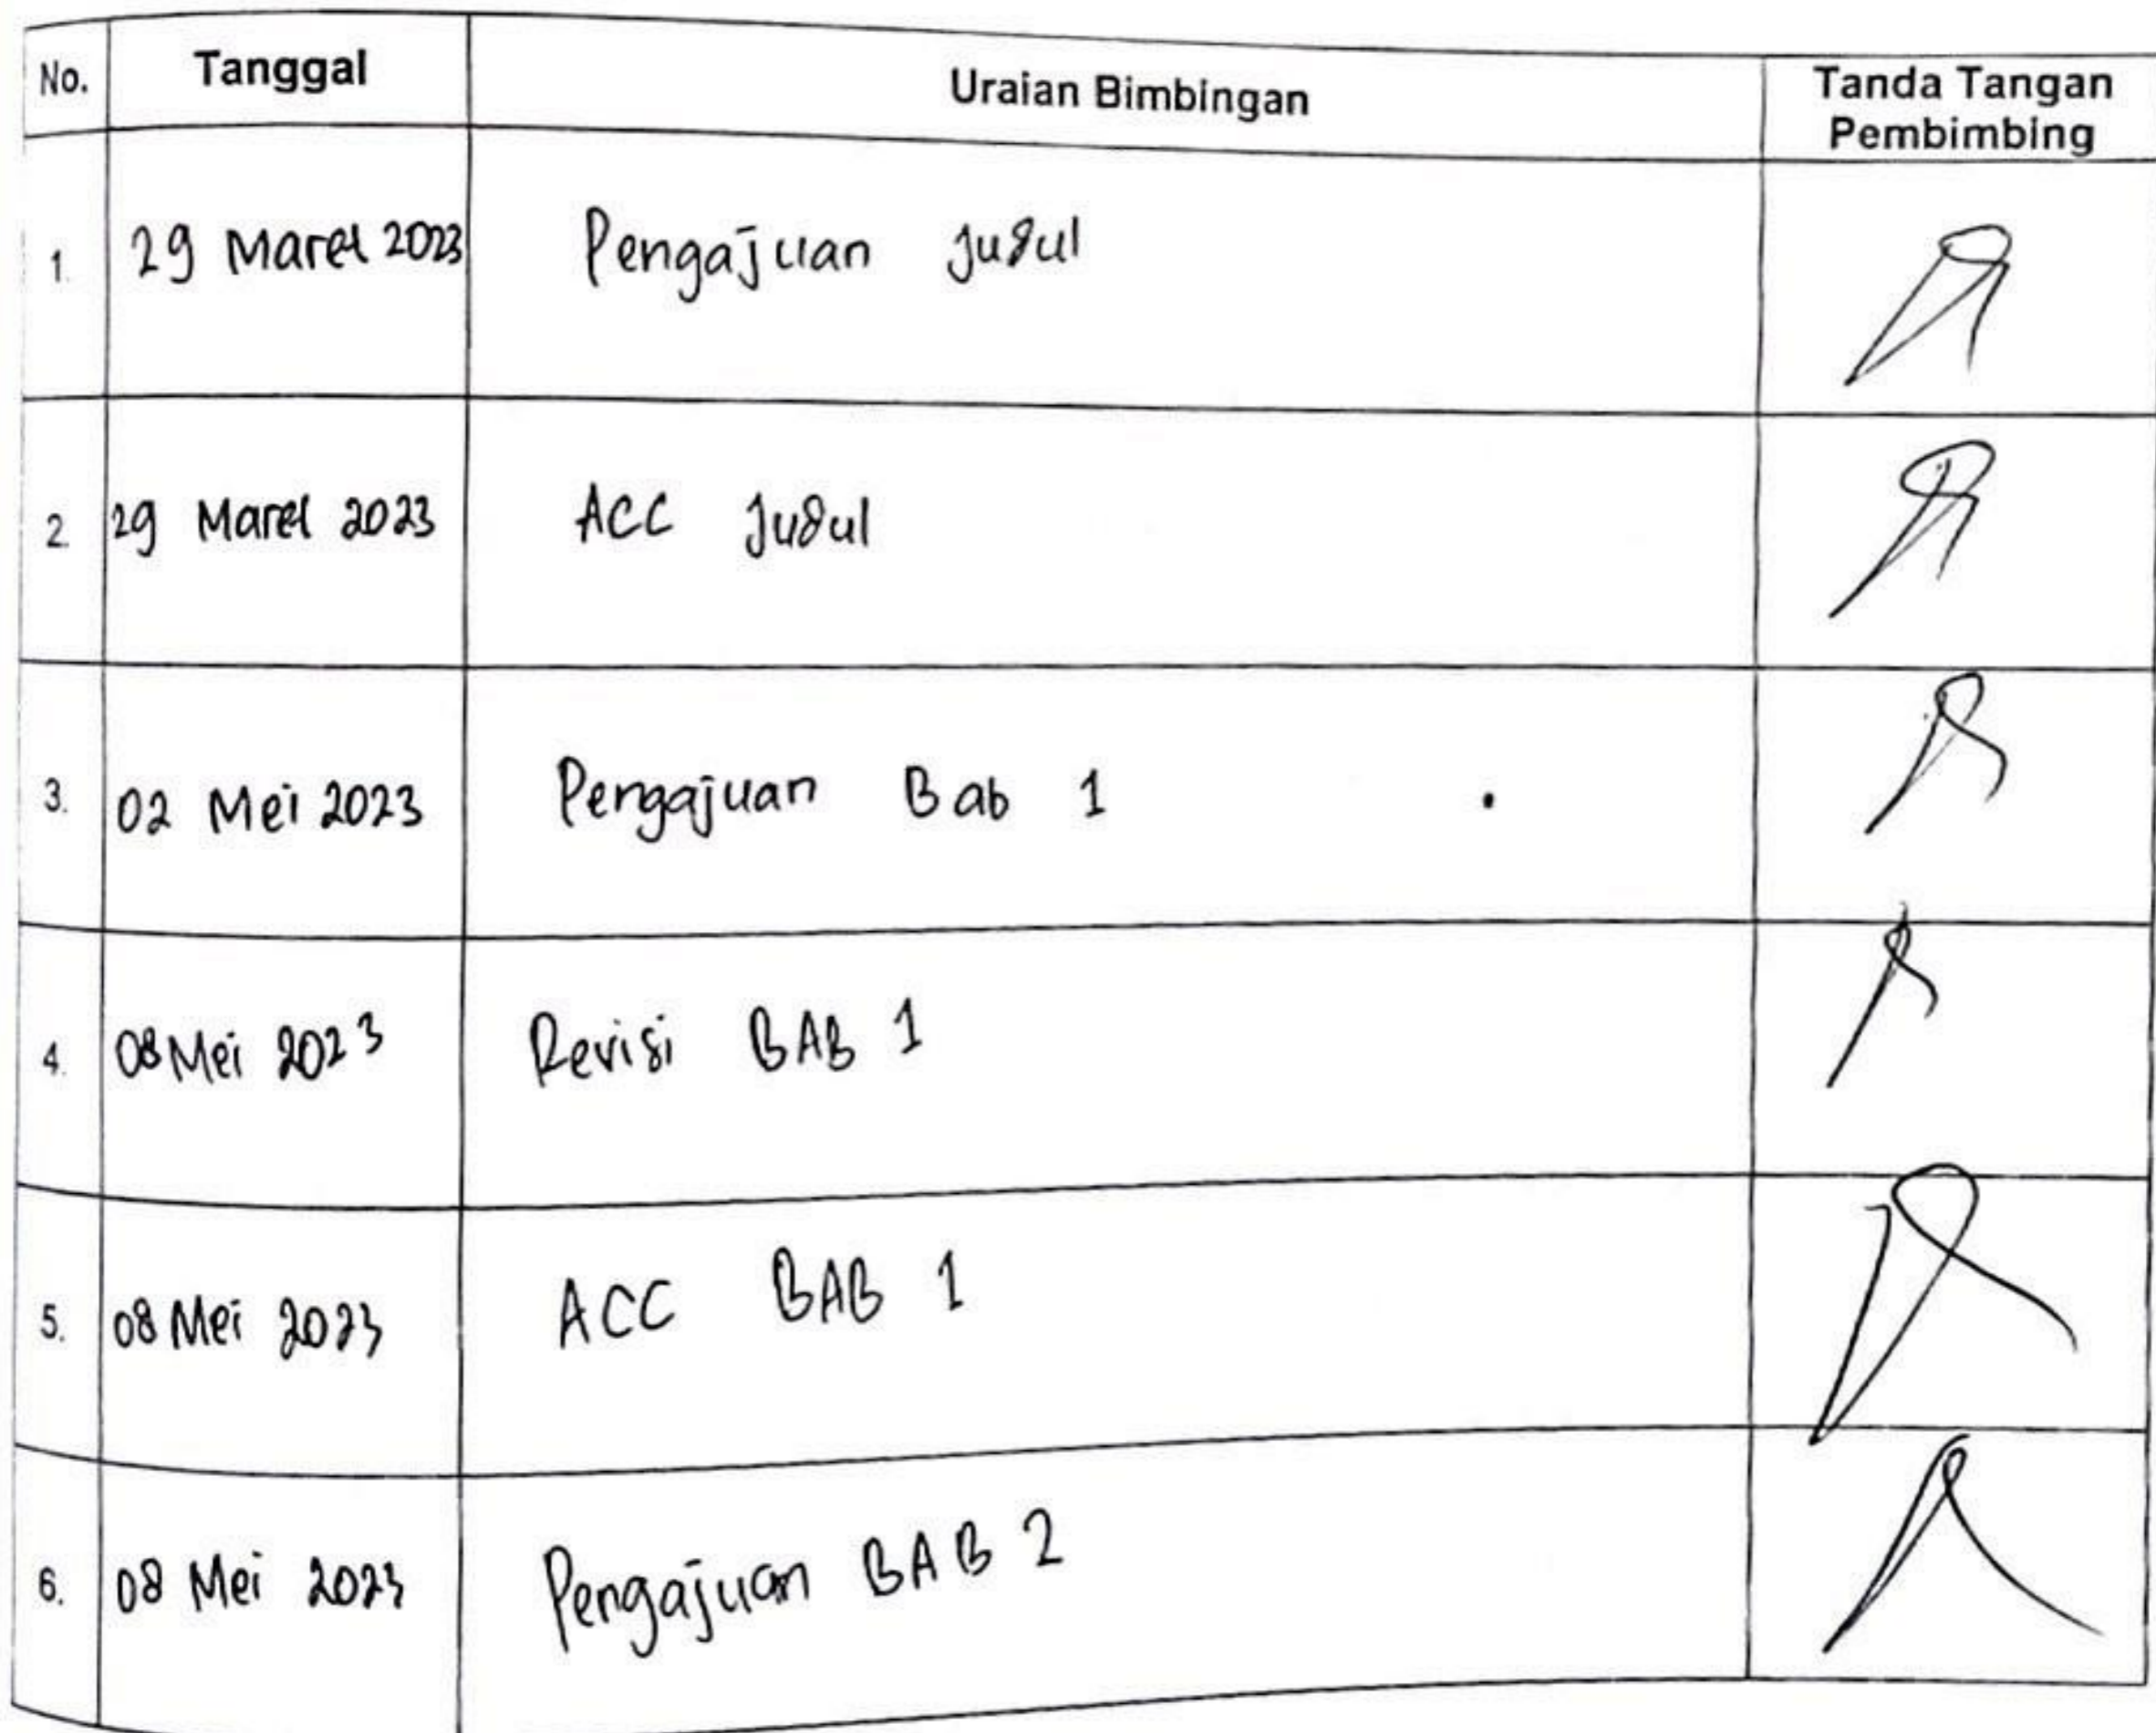 No. Tanggal Uraian Bimbingan Tanda Tangan Pembimbing
1. 29 Maret 2023 Pengajuan Judul
2. 29 Maret 2023 ACC Judul
3. 02 Mei 2023 Pengajuan Bab 1
4. 08 Mei 2023 Revisi BAB 1
5. 08 Mei 2023 ACC BAB 1
6. 08 Mei 2023 Pengajuan BAB 2